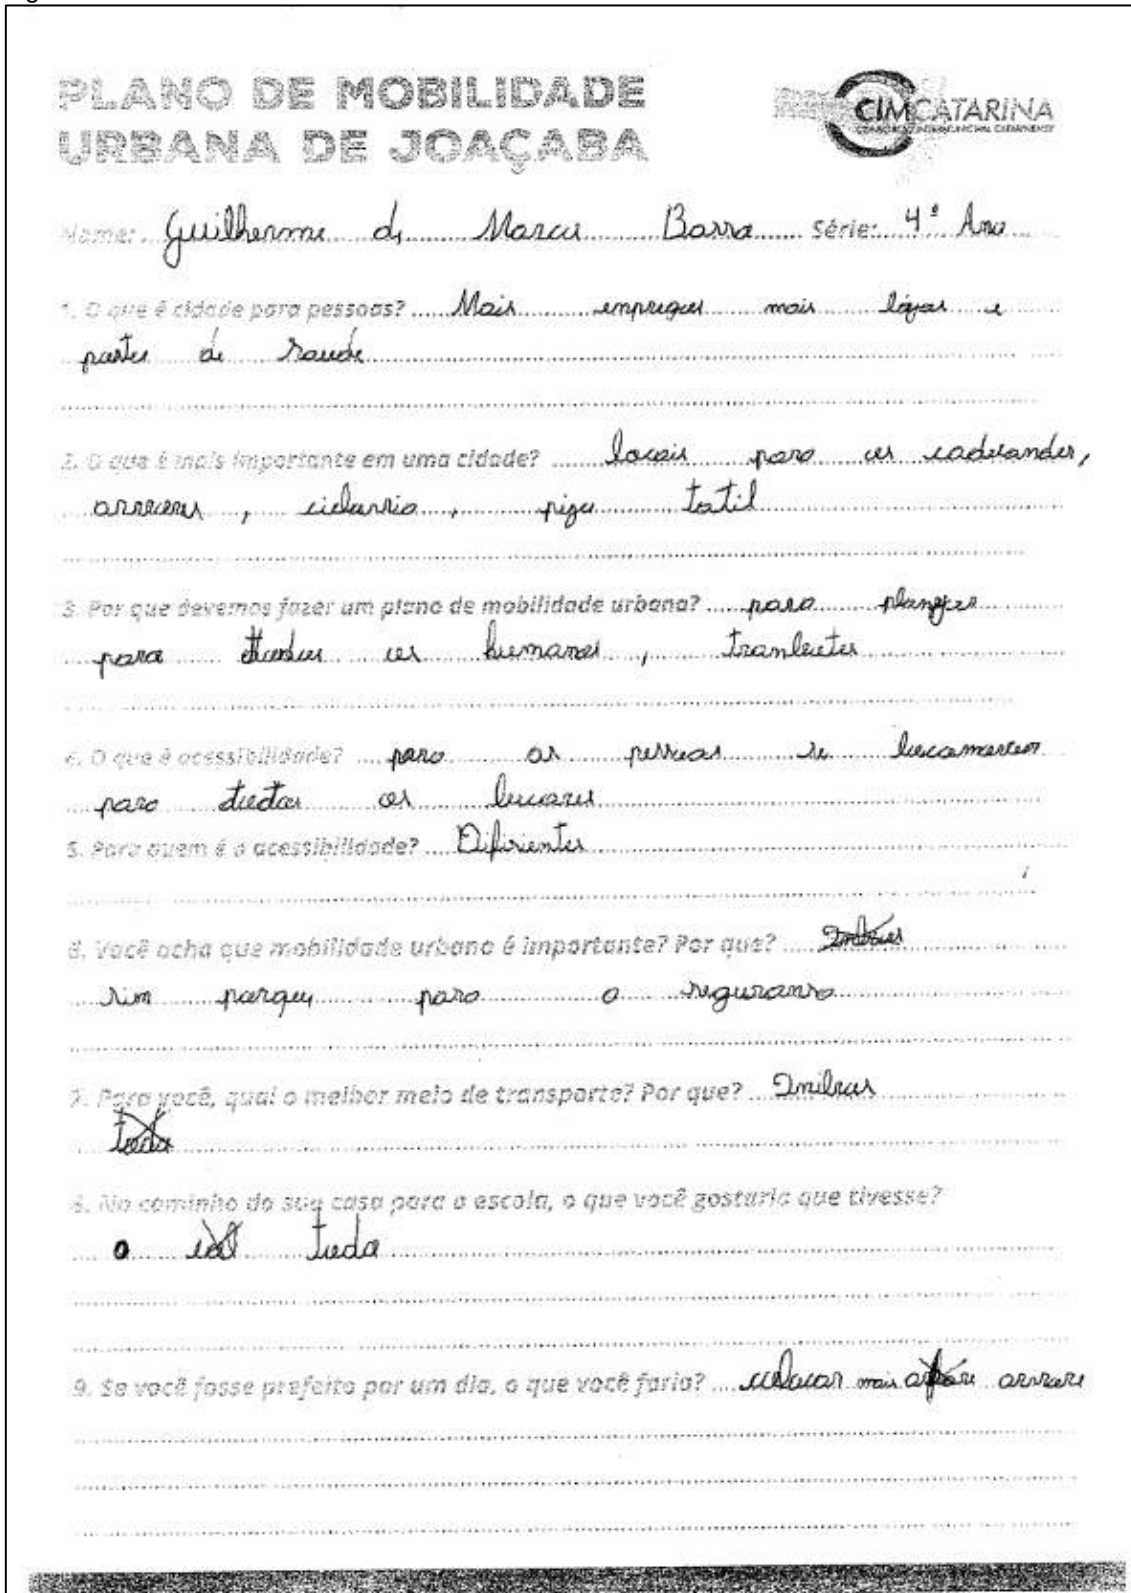 PLANO DE MOBILIDADE
URBANA DE JOAÇABA
CIMCATARINA
Nome: Guilherme di Marcu Barra Série: 4º Ano
1. O que é cidade para pessoas? Mais empregus mais lójas e
postes de saude
2. O que é mais importante em uma cidade? locais para os cadeirandes,
arvores, ciclavria, pizo tatil
3. Por que devemos fazer um plano de mobilidade urbana? para
para os humanos,
4. O que é acessibilidade? para as pessoas se
para os lucares
5. Para quem é a acessibilidade? Difirientes
6. Você acha que mobilidade urbana é importante? Por que?
sim parque para a seguransa
7. Para você, qual o melhor meio de transporte? Por que?
8. No caminho da sua casa para a escola, o que você gostaria que tivesse?
o tuda
9. Se você fosse prefeito por um dia, o que você faria? mais